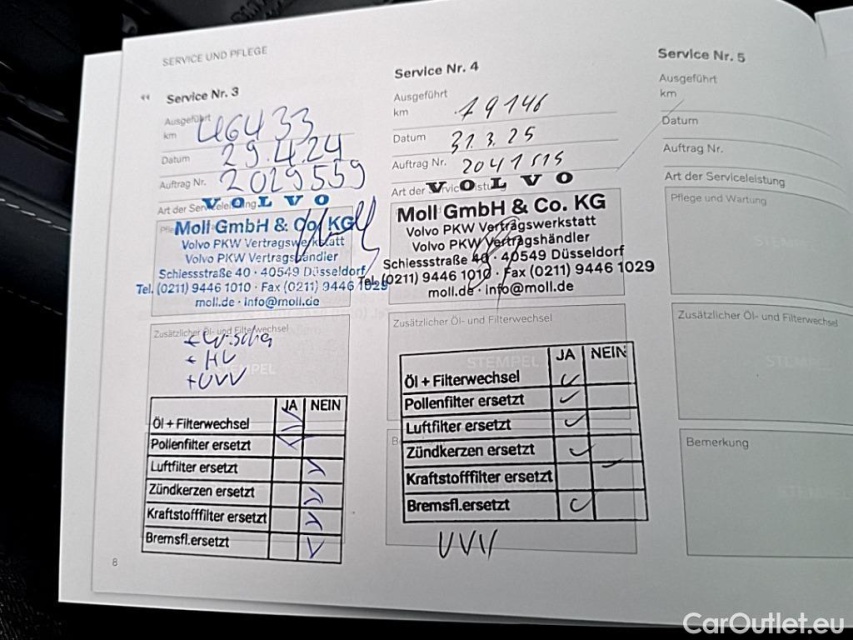 SERVICE UND PFLEGE
Service Nr. 3
Ausgeführt
km 46433
Datum 29.4.24
Auftrag Nr. 2029559
Art der Serviceleistung
VOLVO
Moll GmbH & Co. KG
Volvo PKW Vertragswerkstatt
Volvo PKW Vertragshändler
Schiessstraße 40 · 40549 Düsseldorf
Tel. (0211) 9446 1010 · Fax (0211) 9446 1029
moll.de · info@moll.de
Zusätzlicher Öl- und Filterwechsel
+ HU
+ UVV
STEMPEL
JA NEIN
Öl + Filterwechsel
Pollenfilter ersetzt
Luftfilter ersetzt
Zündkerzen ersetzt
Kraftstofffilter ersetzt
Bremsfl.ersetzt
8
Service Nr. 4
Ausgeführt
km 79146
Datum 31.3.25
Auftrag Nr. 2041515
Art der Serviceleistung
VOLVO
Moll GmbH & Co. KG
Volvo PKW Vertragswerkstatt
Volvo PKW Vertragshändler
Schiessstraße 40 · 40549 Düsseldorf
Tel. (0211) 9446 1010 · Fax (0211) 9446 1029
moll.de · info@moll.de
Zusätzlicher Öl- und Filterwechsel
STEMPEL
JA NEIN
Öl + Filterwechsel
Pollenfilter ersetzt
Luftfilter ersetzt
Zündkerzen ersetzt
Kraftstofffilter ersetzt
Bremsfl.ersetzt
UVV
Service Nr. 5
Ausgeführt
km
Datum
Auftrag Nr.
Art der Serviceleistung
Pflege und Wartung
STEMPEL
Zusätzlicher Öl- und Filterwechsel
STEMPEL
Bemerkung
STEMPEL
CarOutlet.eu